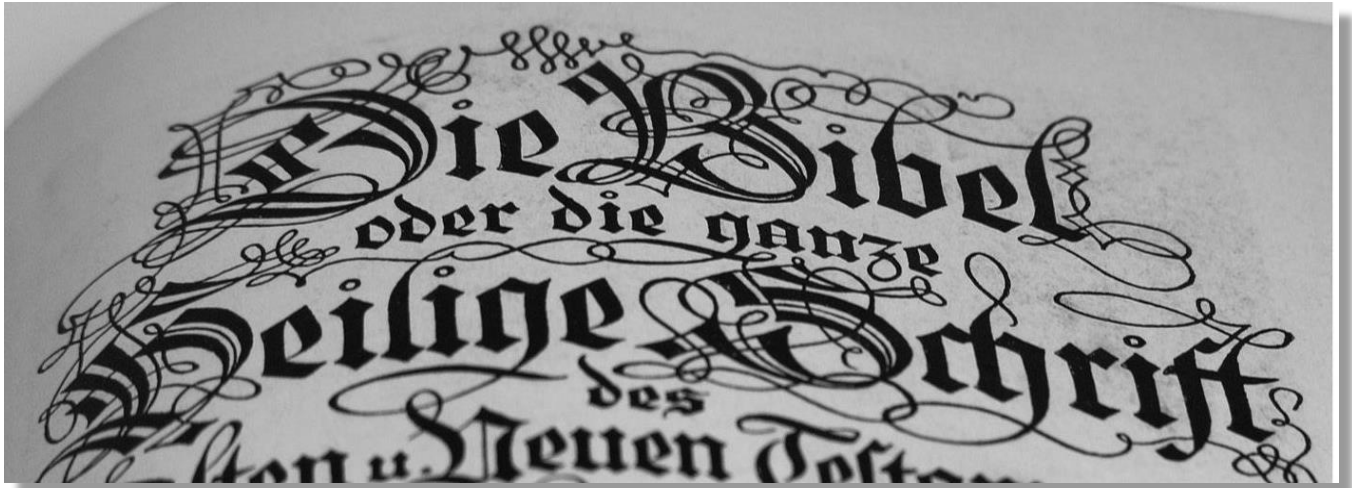 Die Bibel
oder die ganze
Heilige Schrift
des
Alten u. Neuen Testam